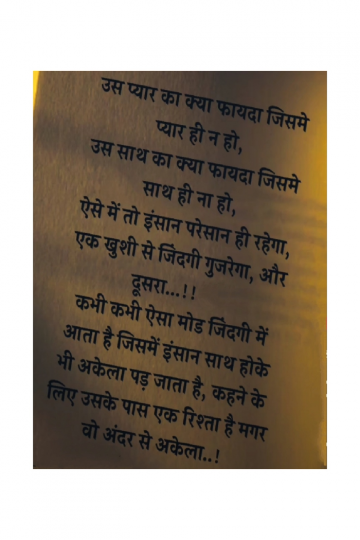 उस प्यार का क्या फायदा जिसमे
प्यार ही न हो,
उस साथ का क्या फायदा जिसमे
साथ ही ना हो,
ऐसे में तो इंसान परेसान ही रहेगा,
एक खुशी से जिंदगी गुजरेगा, और
दूसरा...!!
कभी कभी ऐसा मोड जिंदगी में
आता है जिसमें इंसान साथ होके
भी अकेला पड़ जाता है, कहने के
लिए उसके पास एक रिश्ता है मगर
वो अंदर से अकेला..!